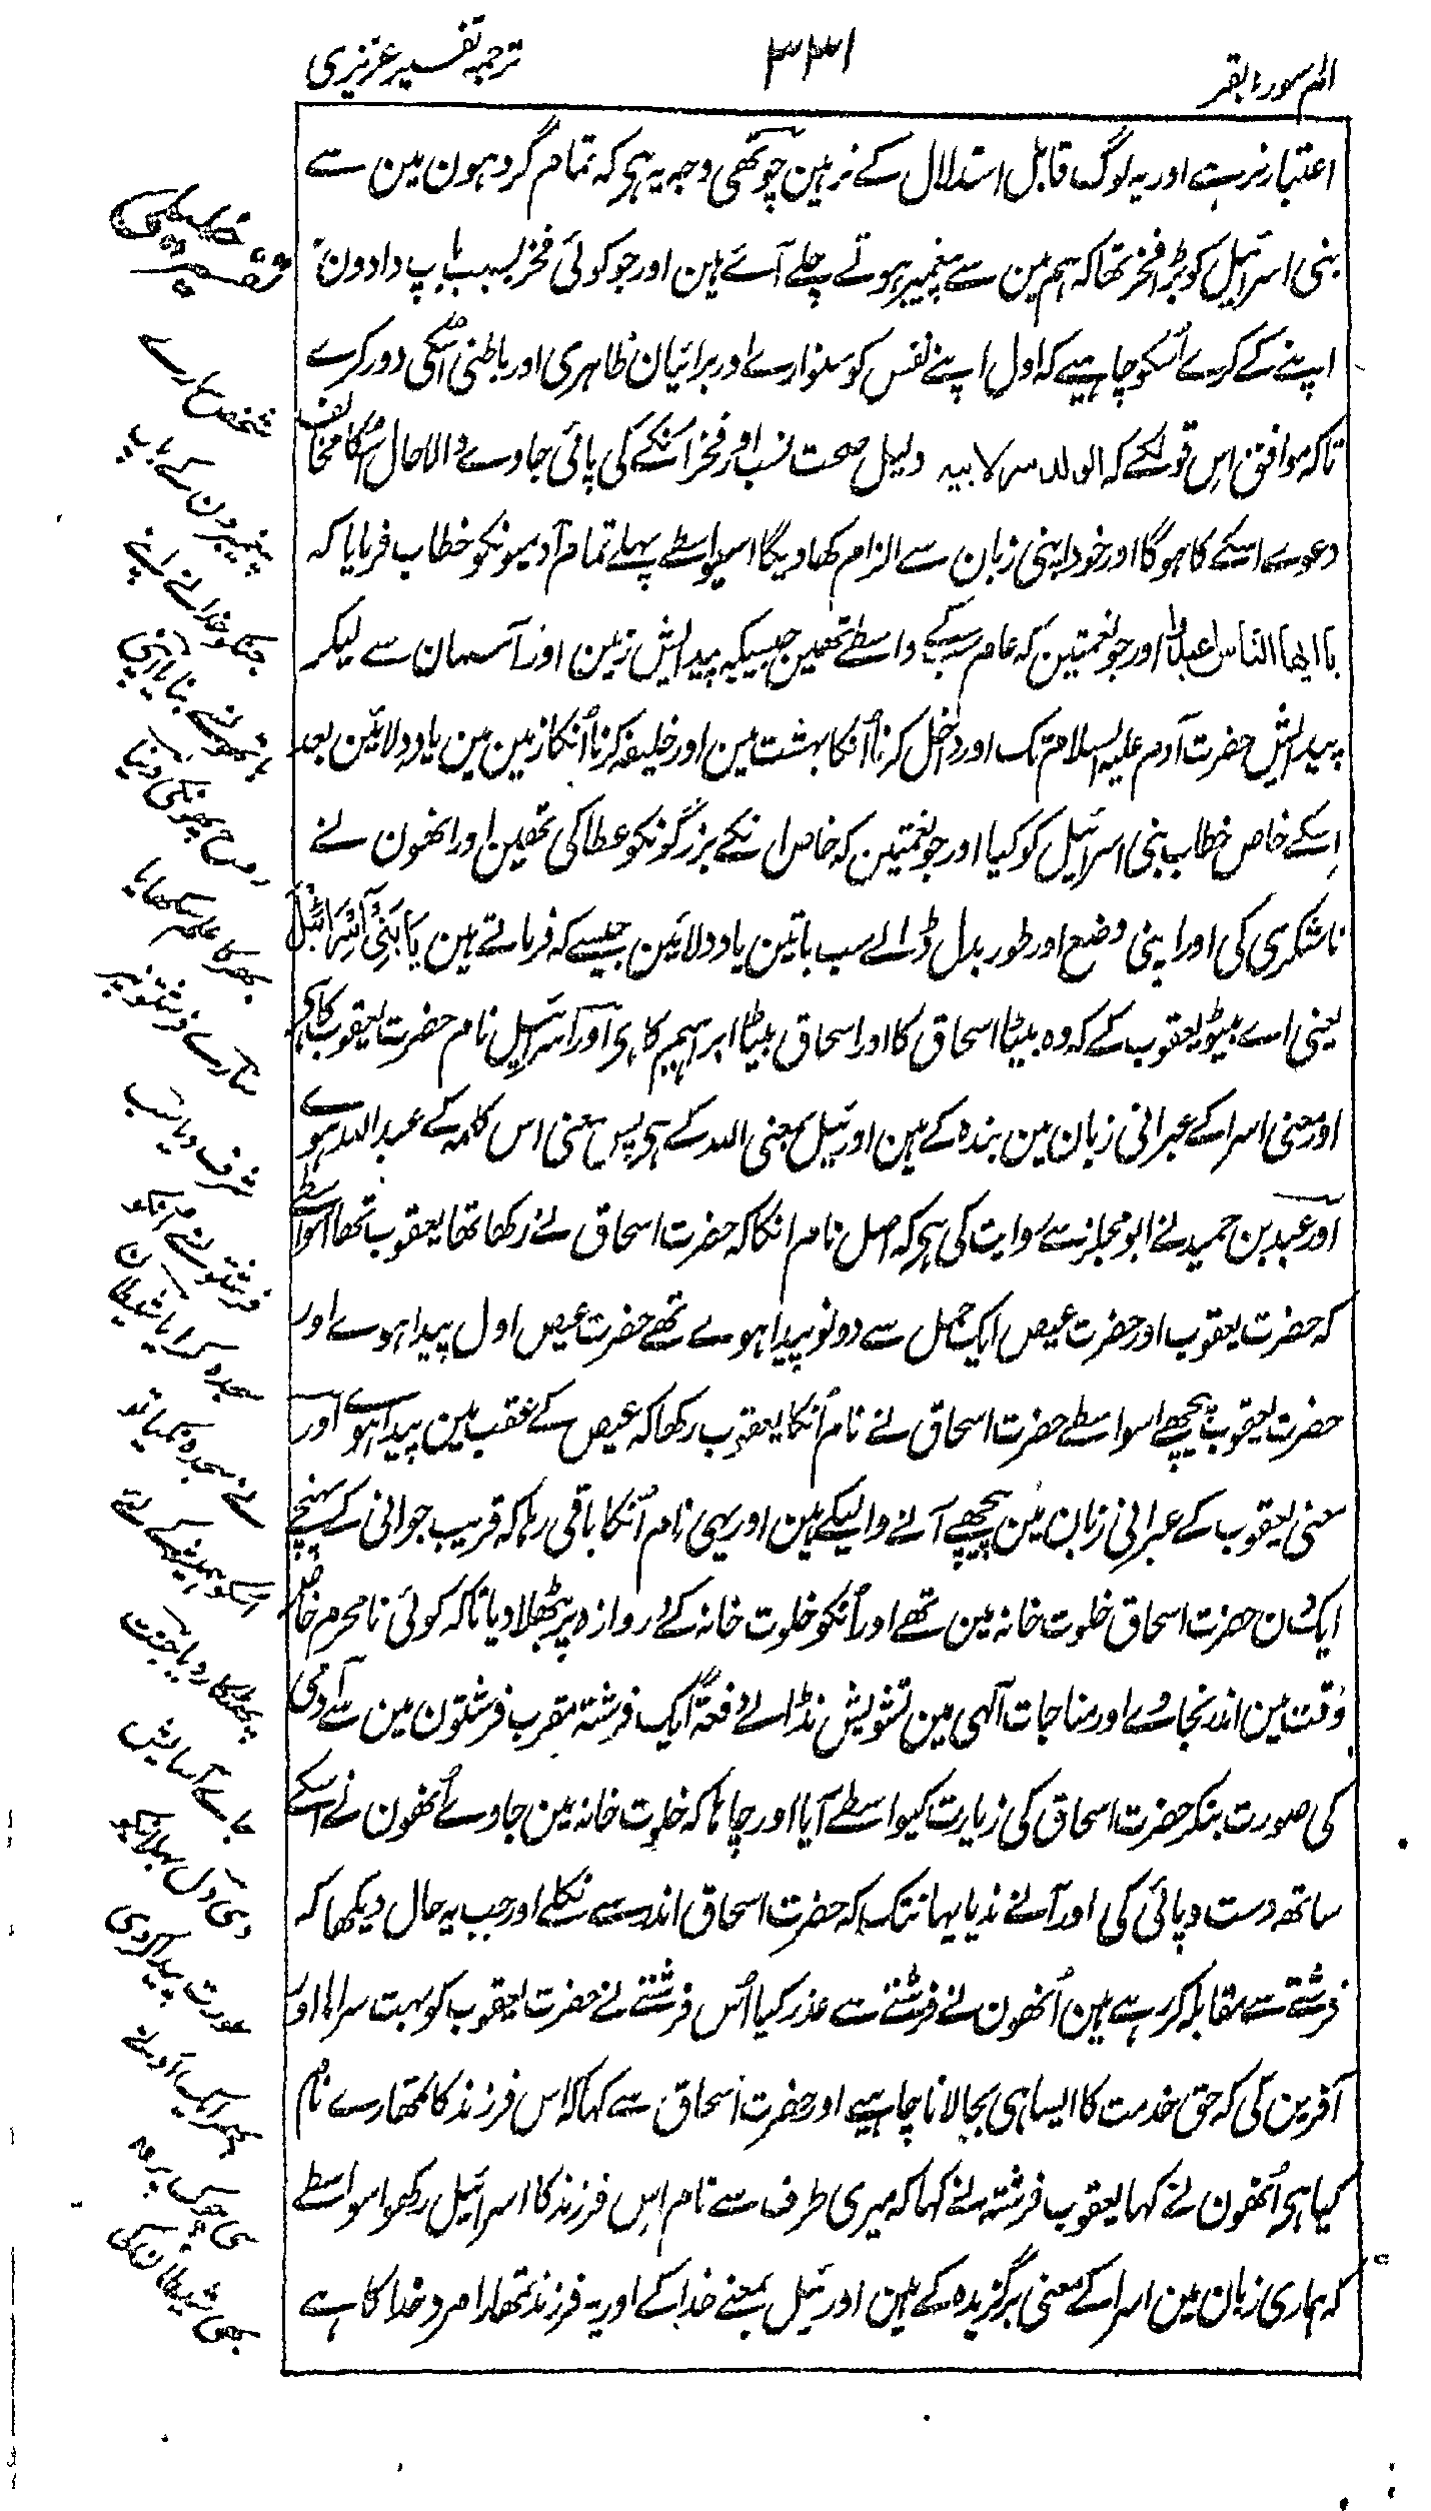 الم سورۂ بقر
۳۳۱
ترجمہ تفسیر عزیزی
اعتبار نرہے اور یہ لوگ قابل استدلال کے نرہین چوتھی وجہ یہ ہی کہ تمام گروہون مین سے
بنی اسرائیل کو بڑا فخر تھا کہ ہم مین سے پیغمبر ہوتے چلے آئے ہین اور جو کوئی فخر بسبب باپ دادون
اپنے کے کرے اُسکو چاہیے کہ اول اپنے نفس کو سنوارے اور برائیان ظاہری اور باطنی اُسکی دور کرے
تاکہ موافق اِس قولکے کہ الولد سر لابیہ دلیل صحت نسب اور فخر انکے کی پائی جاوے والا حال اُسکا مخالف
دعوے اسکے کا ہوگا اور خود اپنی زبان سے الزام کھاویگا اسیواسطے پہلے تمام آدمیونکو خطاب فرمایا کہ
یا ایھا الناس اعبدوا اور جو نعمتین کہ عام سبکے واسطے تھین جیسیکہ پیدایش زمین اور آسمان سے لیکر
پیدایش حضرت آدم علیہ السلام تک اور داخل کرنا اُنکا بہشت مین اور خلیفہ کرنا اُنکا زمین مین یاد دلائین بعد
اِسکے خاص خطاب بنی اسرائیل کو کیا اور جو نعمتین کہ خاص انکے بزرگونکو عطا کی تھین اور انھون نے
ناشکری کی اور اپنی وضع اور طور بدل ڈالے سب باتین یاد دلائین جیسے کہ فرماتے ہین یَا بَنِیْ اِسْرَائِیْلَ
یعنی اے بیٹو یعقوب کے کہ وہ بیٹا اسحاق کا اور اسحاق بیٹا ابراہیم کا ہی اور اسرائیل نام حضرت یعقوب کا ہی
اور معنی اسرا کے عبرانی زبان مین بندہ کے ہین اور ئیل بمعنی اللہ کے ہی پس معنی اس کلمہ کے عبد اللہ ہوے
اور عبد بن حمید نے ابو مجلز سے روایت کی ہی کہ اصل نام انکا کہ حضرت اسحاق نے رکھا تھا یعقوب تھا اسواسطے
کہ حضرت یعقوب اور حضرت عیص ایک حمل سے دونو پیدا ہوے تھے حضرت عیص اول پیدا ہوے اور
حضرت یعقوب پیچھے اسواسطے حضرت اسحاق نے نام اُنکا یعقوب رکھا کہ عیص کے عقب مین پیدا ہوے اور
معنی یعقوب کے عبرانی زبان مین پیچھے آنے والیکے ہین اور یہی نام اُنکا باقی رہا کہ قریب جوانی کے پہنچے
ایک دن حضرت اسحاق خلوت خانہ مین تھے اور اُنکو خلوت خانہ کے دروازہ پر بٹھلا دیا تاکہ کوئی نامحرم خاص
وقت مین اندر نجاوے اور مناجات آلہی مین تشویش نڈالے دفعۃً ایک فرشتہ مقرب فرشتون مین سے آدمی
کی صورت بنکر حضرت اسحاق کی زیارت کیواسطے آیا اور چاہا کہ خلوت خانہ مین جاوے اُنھون نے اسکے
ساتھ دست و پائی کی اور آنے ندیا یہانتک کہ حضرت اسحاق اندر سے نکلے اور جب یہ حال دیکھا کہ
فرشتے سے مقابلہ کر رہے ہین اُنھون نے فرشتے سے عذر کیا اُس فرشتے نے حضرت یعقوب کو بہت سراہا اور
آفرین کی کہ حق خدمت کا ایسا ہی بجا لانا چاہیے اور حضرت اسحاق سے کہا کہ اس فرزند کا تمھارے نام
کیا ہی اُنھون نے کہا یعقوب فرشتہ نے کہا کہ میری طرف سے نام اِس فرزند کا اسرائیل رکھو اسواسطے
کہ ہماری زبان مین اسرا کے معنی برگزیدہ کے ہین اور ئیل بمعنے خدا کے اور یہ فرزند تمھارا مرد خدا کا ہے
شخص ہمارے
پیغمبرون کے باپ
جنکو خدا نے اپنے
ہاتھون سے بنایا اپنی
روح پھونکی دنیا
بھر کا علم سکھایا
سارے فرشتونپر
شرف دیا سب
فرشتونسے انکو
سجدہ کرایا شیطان
نے سجدہ نکیا تو
اسکو ہمیشہ کے لئے
پھٹکار دیا جنت
جاے آسایش
دی دل بہلانیکو
عورت پیدا کر دی